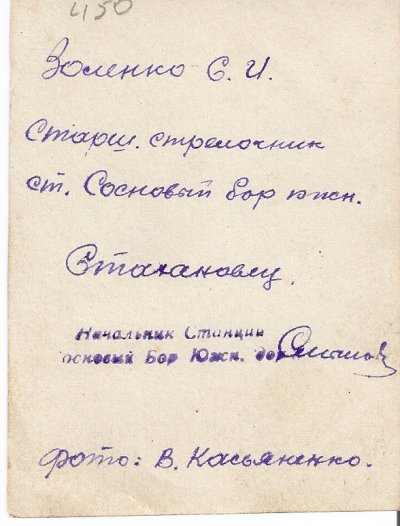 450
Золенко С. И.
Старш. стрелочник
ст. Сосновый бор южн.
Стахановец
Начальник Станции
основый Бор Южн. дор
Фото: В. Касьяненко.